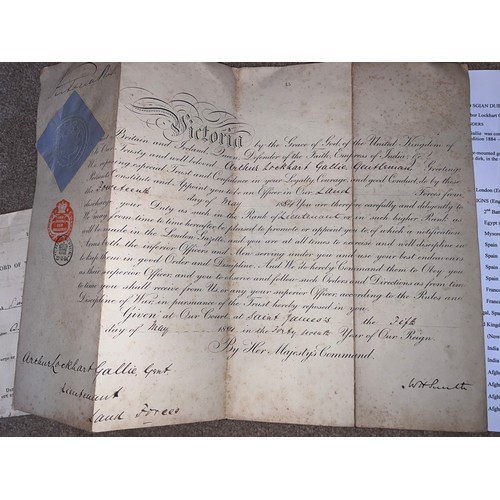 Victoria by the Grace of God, of the United Kingdom of
Britain and Ireland, Queen, Defender of the Faith, Empress of India, &c
Trusty and well beloved Arthur Lockhart Gallie Gentleman Greeting
We reposing especial Trust and Confidence in your Loyalty, Courage, and good Conduct, do by these
Presents Constitute and Appoint you to be an Officer in Our Land Forces from
the Fourteenth day of May 1884 You are therefore carefully and diligently to
discharge your Duty as such in the Rank of Lieutenant or in such higher Rank as
We may from time to time hereafter be pleased to promote or appoint you to, of which a notification
will be made in the London Gazette, and you are at all times to exercise and well discipline in
Arms both the inferior Officers and Men serving under you and use your best endeavours
to keep them in good Order and Discipline. And We do hereby Command them to Obey you
as their superior Officer, and you to observe and follow such Orders and Directions as from time
to time you shall receive from Us, or any your superior Officer, according to the Rules and
Discipline of War, in pursuance of the Trust hereby reposed in you.
Given at Our Court, at Saint James's the Fifth
day of May in the Forty seventh Year of Our Reign.
By Her Majesty's Command.
Arthur Lockhart Gallie, Gent
Lieutenant
Land Forces
ORD OF
NGIAN DU
bur Lockhart
dition 1884
IGNS (Eng
2nd
Egypt
Mysore
Spain
Spain
France
Spain
Spain
Spain
France
(New
India
India
Afgha
Afgha
Afgha
Afgha